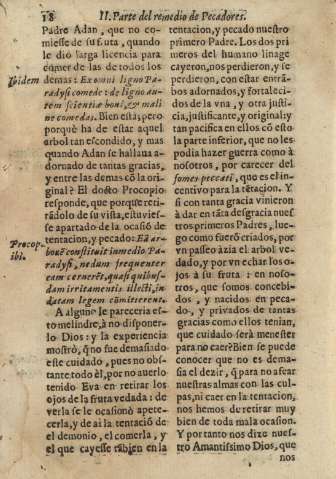 18 II. Parte del remedio de Pecadores.
Padre Adan, que no co-
miesse de su fruta, quando
le dió larga licencia para
comer de las de todos los
Ibidem
demas: Ex omni ligno Pa-
radysi comede: de ligno au-
tem scientiæ boni, & mali
ne comedas. Bien está; pero
porquè ha de estar aquel
arbol tan escondido, y mas
quando Adan se hallaua a-
dornado de tantas gracias,
y entre las demás cõ la ori-
ginal? El docto Procopio
responde, que porq̃ reti-
rãdolo de su vista, estuvies-
se apartado de la ocasiõ de
Procop.
ibi.
tentacion, y pecado: Eã ar-
borẽ constituit in medio Pa-
radysi, ne dum frequenter
eam cernerẽt, quasi quibus-
dam irritamentis illecti, in
datam legem cõmitterent.
A alguno le pareceria es-
to melindre, à no disponer-
lo Dios: y la experiencia
mostrò, q̃ no fue demasiado
este cuidado, pues no obs-
tante todo èl, por no auerlo
tenido Eva en retirar los
ojos de la fruta vedada: de
verla se le ocasionò apete-
cerla, y de ai la tentaciõ de
el demonio, el comerla, y
el que cayesse tãbien en la
tentacion, y pecado nuestro
primero Padre. Los dos pri
meros del humano linage
cayeron, nos perdieron, y se
perdieron, con estar entrã-
bos adornados, y fortaleci-
dos de la vna, y otra justi-
cia, justificante, y original; y
tan pacifica en ellos cõ esto
la parte inferior, que no les
podia hazer guerra como à
nosotros, por carecer del
fomes peccati, que es el in-
centivo para la tẽtacion. Y
si con tanta gracia vinieron
à dar en tãta desgracia nues
tros primeros Padres, lue-
go como fuerõ criados, por
vn passeo àzia el arbol ve-
dado, y por vn echar los o-
jos à su fruta: en noso-
tros, que somos concebi-
dos, y nacidos en peca-
do, y privados de tantas
gracias como ellos tenian,
que cuidado serà menester
para no caer? Bien se puede
conocer que no es dema-
sia el dezir, q̃ para no afear
nuestras almas con las cul-
pas, ni caer en la tentacion,
nos hemos de retirar muy
bien de toda mala ocasion.
Y por tanto nos dizo nues-
tro Amantissimo Dios, que
nos